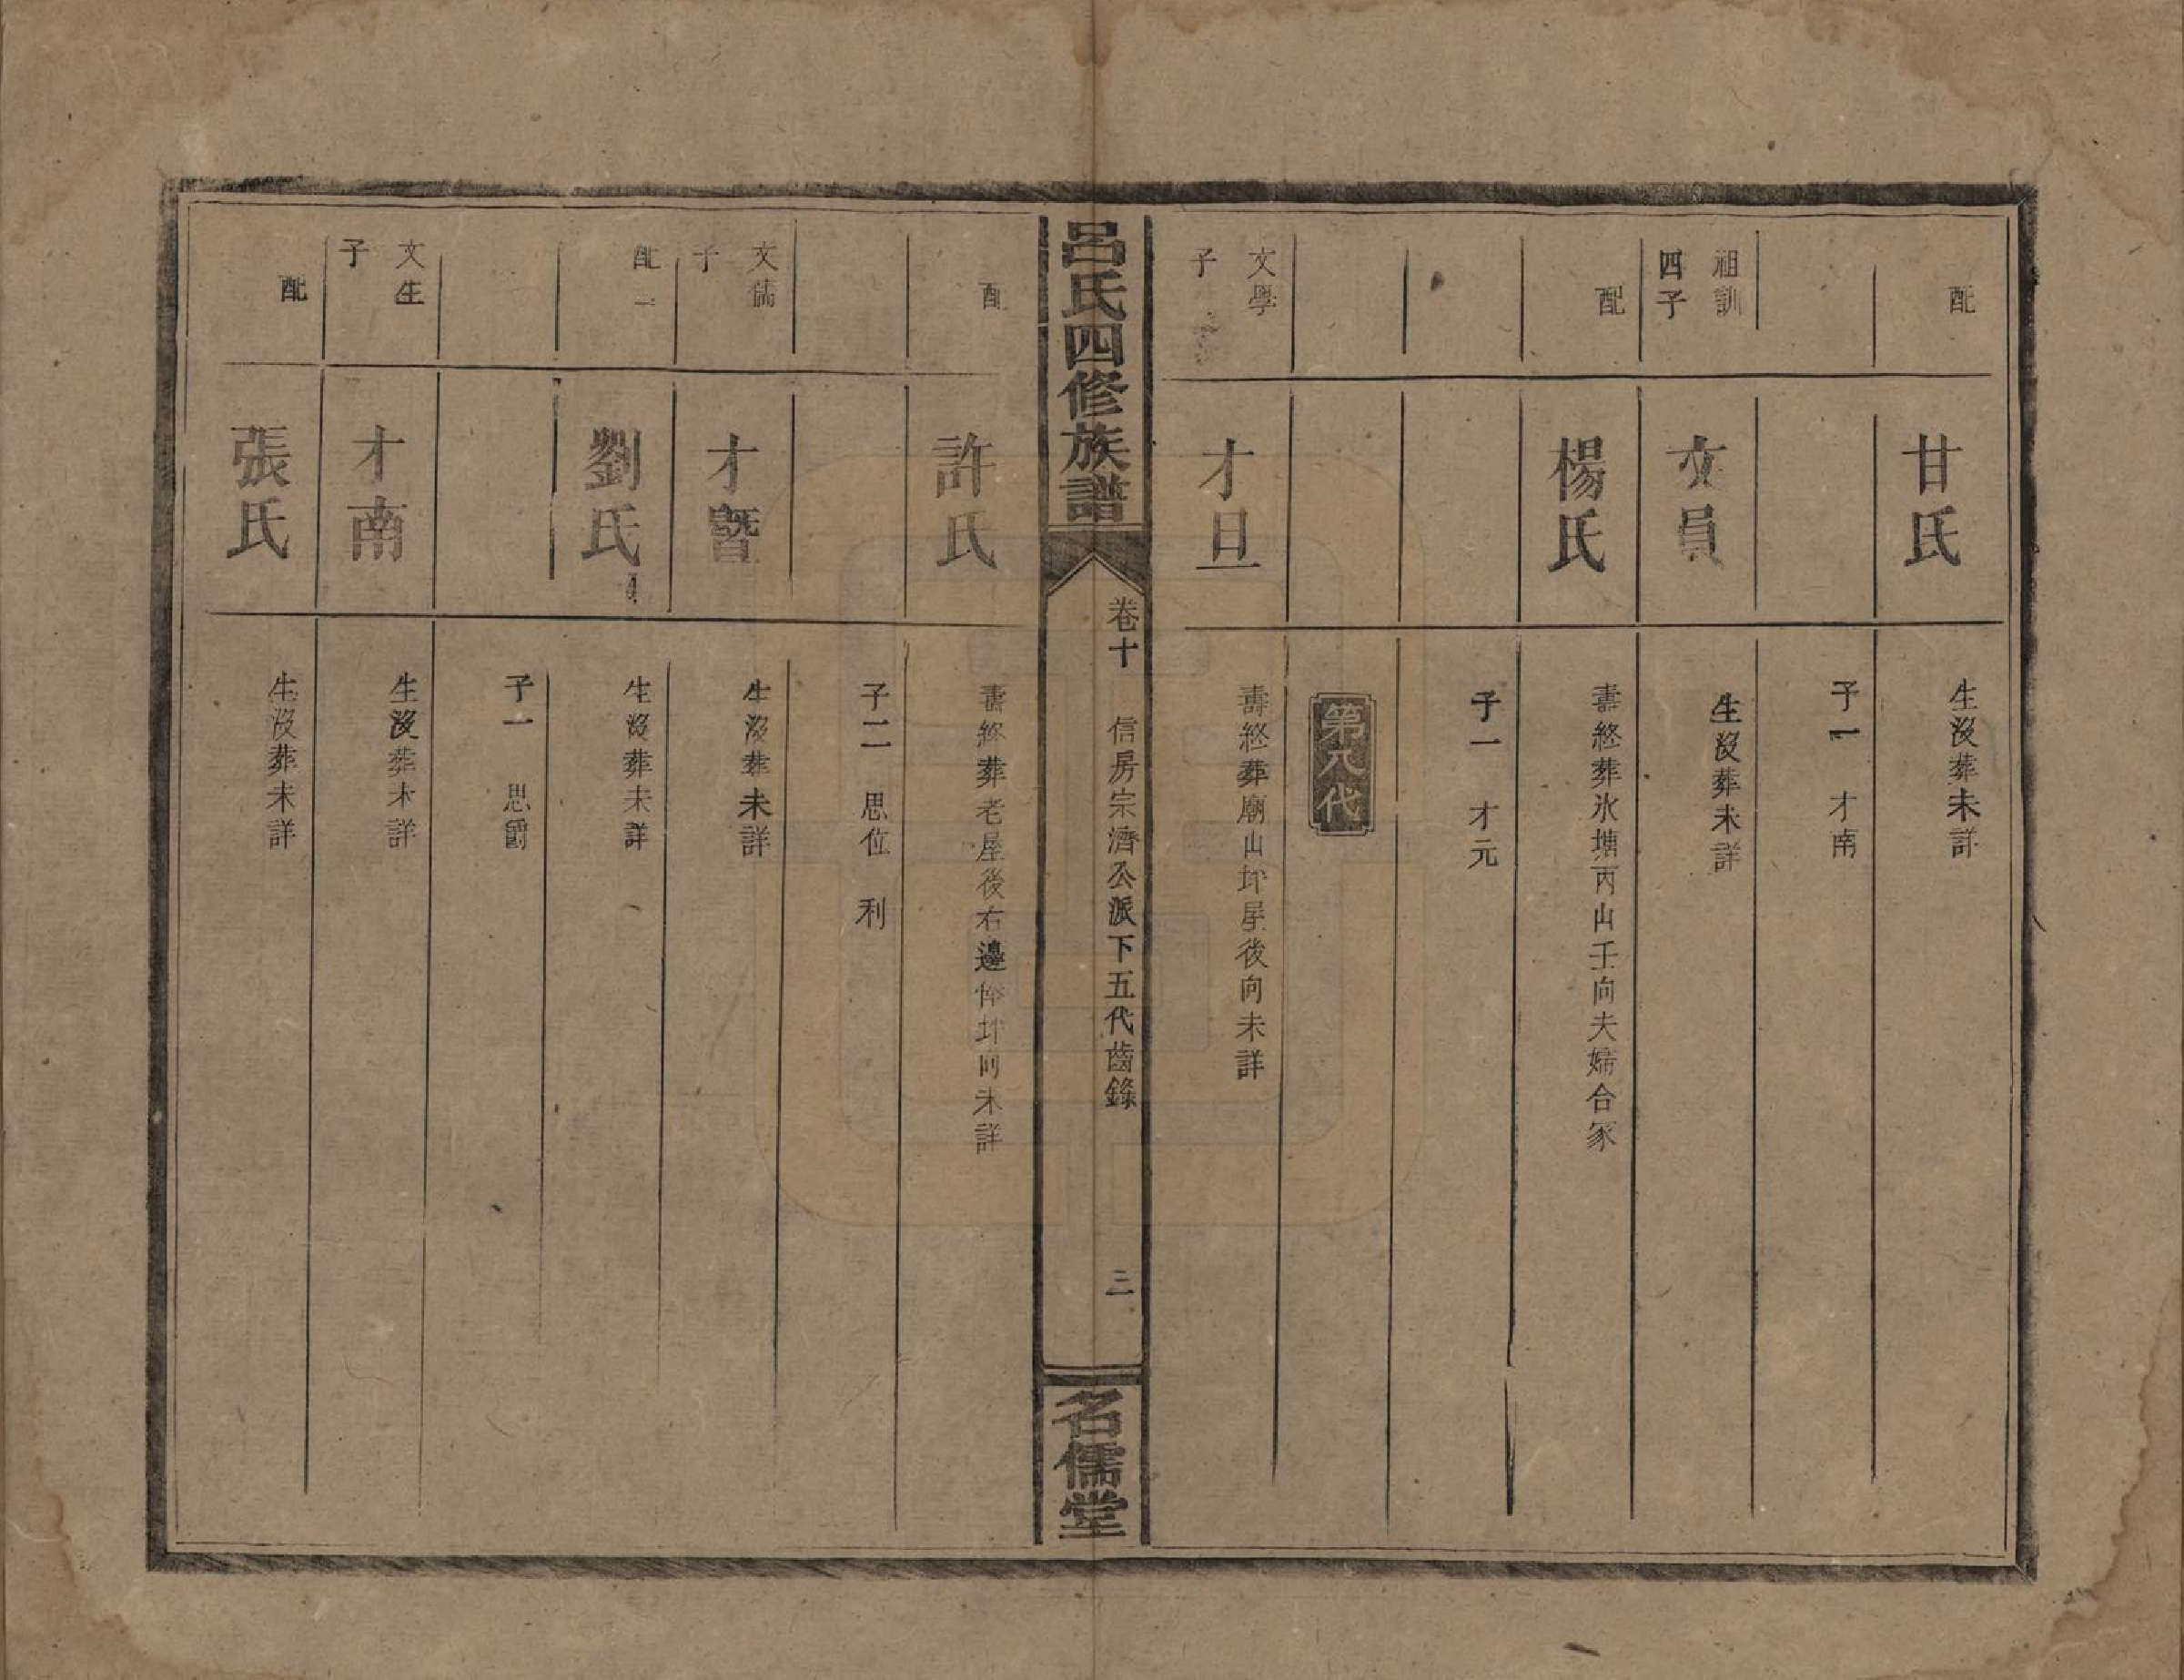 配
甘氏
生沒葬未詳
子一 才南
祖訓
四子
文員
生沒葬未詳
配
楊氏
壽終葬氷塘丙山壬向夫婦合冢
子一 才元
第八代
文學
子
才旦
壽終葬廟山坏屋後向未詳
呂氏四修族譜
卷十 信房宗濟公派下五代齒錄
三
名儒堂
配
許氏
壽終葬老屋後右邊 坏向未詳
子二 思位 利
文儒
子
才暨
生沒葬未詳
配一
劉氏
生沒葬未詳
子一 思爵
文生
子
才南
生沒葬未詳
配
張氏
生沒葬未詳